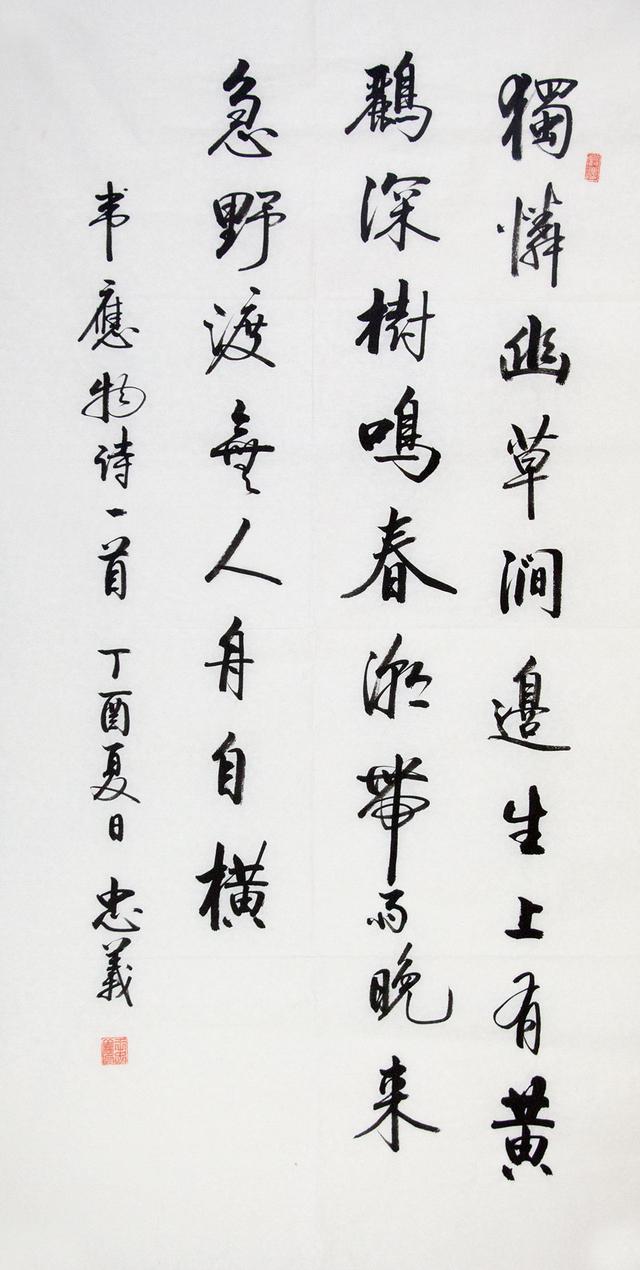 獨憐幽草澗邊生上有黄
鸝深樹鳴春潮帶雨晚来
急野渡無人舟自橫
韦應物诗一首 丁酉夏日 忠義